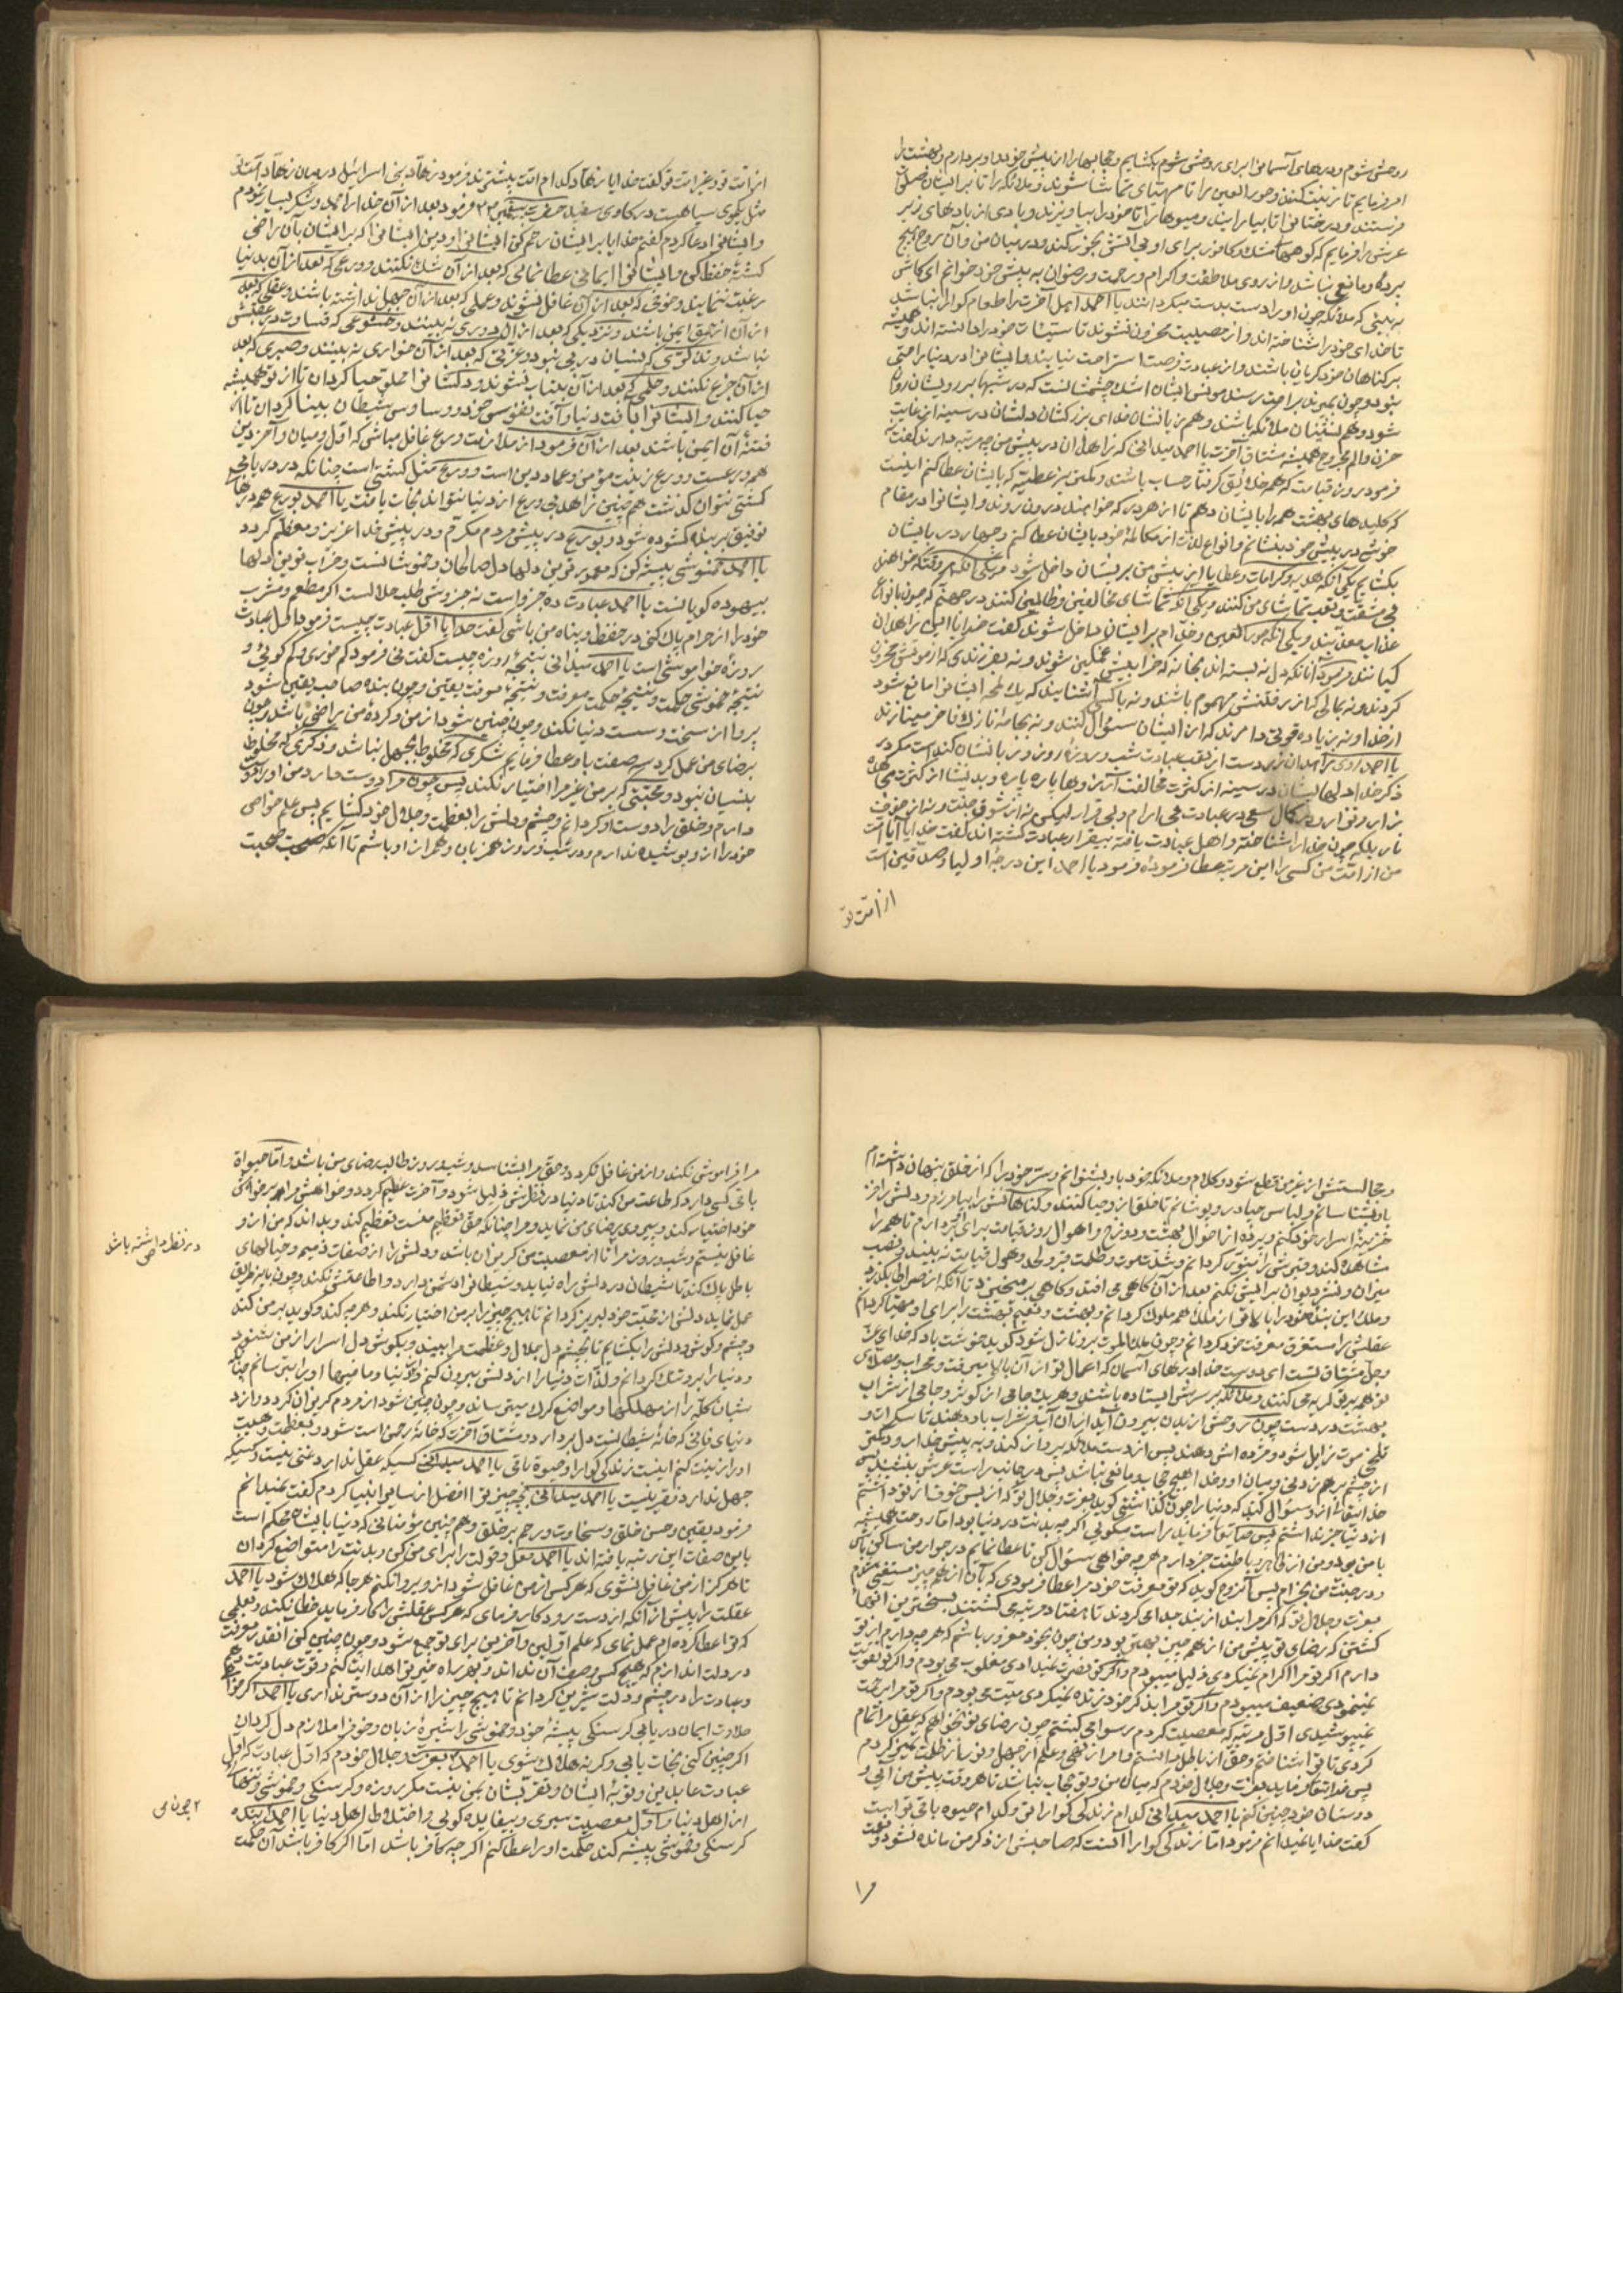 روحش شوم و درهای آسمانرا برای روحش بگشایم و حجابها را از پیش خود او بردارم و بهشت را
امر فرمایم تا زینت کنند و حور العین را تا مهیای تماشا شوند و ملائکه را تا بر ایشان
فرستند و درختانرا تا بیارایند و میوها را تا خود را بیاویزند و بادی از بادهای زیر
عرش را فرمایم که کوهها مشک و کافور برای او بی آتش بخور کنند و در میان من و آن روح هیچ
پرده و مانعی نباشد و از روی ملاطفت و اکرام و رحمت و رضوان به پیش خود خوانم ای کاش
به بینی که ملائکه چون او را دست بدست میگردانند یا احمد اهل آخرت را طعام گوارا نباشد
تا خدای خود را شناخته اند و از مصیبت محزون نشوند تا سیئات خود را دانسته اند و همیشه
بر کناهان خود گریان باشند و از عبادت فرصت استراحت نیابند و ایشانرا در دنیا راحتی
نبود و چون بمیرند براحت رسند مونس ایشان اشک چشمشانست که در شبها بر رویشان روان
شود و همنشینان ملائکه باشند و همزبانشان خدای بزرگ دلشان در سینه از غایت
حزن و الم مجروح همیشه مشتاق آخرت یا احمد میدانی که زاهدان در پیش من چه مرتبه دارند گفت نه
فرمود روز قیامت که همه خلائق گرفتار حساب باشند و کمترین عطیه که بایشان عطا کنم اینست
که کلیدهای بهشت همه را بایشان دهم تا از هر در که خواهند درون روند و ایشانرا در مقام
خوش در پیش خود بنشانم و انواع لذت از مکالمه خود بایشان عطا کنم و چهار در بایشان
بگشایم یکی آنکه هدیه و کرامات و عطایا از پیش من بر ایشان داخل شود و یکی آنکه هر وقت که خواهند
بی مشقت و تعب تماشای من کنند و یکی آنکه تماشای مخالفین و ظالمین کنند در جهنم که چون بانواع
عذاب معذبند و یکی آنکه حور العین و خدام بر ایشان داخل شوند گفت خدایا این زاهدان
کیانند فرمود آنانکه دل نه بسته اند بخانه که خرابیش غمگین شوند و نه بفرزندی که از موتش محزون
گردند و نه بمالی که از رفتنش مهموم باشند و نه با کسی آشنایند که یک لمحه ایشانرا مانع شود
از خدا و نه زیاده قوتی دارند که از ایشان سؤال کنند و نه بجامهٔ نازک فاخر مینازند
یا احمد روی زاهدان زرد است از تعب عبادت شب و روزهٔ روز و زبانشان کند است مگر در
ذکر خدا و دلها ایشان در سینه از کثرت مخالفت
کمال سعی در عبادت بی آرام و بی قرار لیکن نه از شوق جنت و نه از خوف
نار بلکه چون خدا را شناخته و اهل عبادت یافته بیقرار عبادت گشته اند گفت خدایا آیا امت
من از امت من کسی را این مرتبه عطا فرموده فرمود یا احمد این درجهٔ اولیا و صدیقین است
از امت تو
از امت تو و غیر امت تو گفت خدایا زهاد کدام امت بیشترند فرمود زهاد بنی اسرائیل در میان زهاد امت تو
مثل یکموی سیاهیست در گاوی سفید حضرت پیغمبر ص فرمود بعد از آن خدا را حمد و شکر بسیار نمودم
و ایشانرا دعا کردم گفتم خدایا بر ایشان رحم کن ایشانرا و دین ایشانرا که بر ایشان بآن راضی
گشتهٔ حفظ کن و ایشانرا ایمانی عطا نمائی که بعد از آن شک نکنند و ورعی که بعد از آن بدنیا
رغبت ننمایند و خوفی که بعد از آن غافل نشوند و علمی که بعد از آن جهل نداشته باشند و عقلی که بعد
از آن از حمق ایمن باشند و نزدیکی که بعد از آن دوری نه بینند و خشوعی که قساوت در عقبش
نباشد و ذکری که نسیان در پی نبود و عزتی که بعد از آن خواری نه بینند و صبری که بعد
از آن جزع نکنند و حلمی که بعد از آن بعتاب نشوند و دلشانرا مملو حیا گردان تا از تو همیشه
حیا کنند و ایشانرا بآفت دنیا و آفت نفوس خود و وساوس شیطان بینا گردان تا از
فتنهٔ آن ایمن باشند بعد از آن فرمود از ملازمت ورع غافل مباش که اول و میان و آخر دین
همه ورعست و ورع زینت مؤمن و عماد دین است و ورع مثل کشتی است چنانکه در دریا بی
کشتی نتوان گذشت همچنین زاهد بی ورع از دنیا نتواند نجات یافت یا احمد بورع همه درهای
توفیق بر بنده گشوده شود و بورع در پیش مردم مکرم و در پیش خدا عزیز و معظم گردد
یا احمد خموشی پیشه کن که معمورترین دلها دل صالحان و خموشانست و خراب ترین دلها
بیهوده گویانست یا احمد عبادت ده جزو است نه جزوش طلب حلالست اگر مطعم و مشرب
خود را از حرام پاک کنی در حفظ و پناه من باشی گفت خدایا اول عبادت چیست فرمود اول عبادت
روزهٔ خواموشی است یا احمد میدانی نتیجهٔ روزه چیست گفت نی فرمود کم خوری و کم گوئی و
نتیجهٔ خموشی حکمت و نتیجهٔ حکمت معرفت و نتیجهٔ معرفت یقین و چون بنده صاحب یقین شود
پروا از سخت و سست دنیا نکند و چون چنین شود از من و کردهٔ من راضی باشد و چون
برضای من عمل کرد سه صفت باو عطا فرمایم شکری که مخلوط بجهل نباشد و ذکری که مخلوط
بنسیان نبود و محبتی که بر من غیر مرا اختیار نکند پس چون مرا دوست دارد من او را دوست
دارم و خلق را دوست او گردانم و چشم دلش را بعظمت و جلال خود گشایم پس علم خواص
خود را از و پوشیده ندارم و در شب و روز همزبان و همراز او باشم تا آنکه صحبت
و مجالستش از غیر من قطع شود و کلام و ملائکهٔ خود باو بشنوانم و سر خود را که از خلق پنهان داشته ام
باو بشناسانم و لباس حیا در و پوشانم تا خلق از و حیا کنند و گناهانش را بیامرزم و دلش را خز
خزینهٔ اسرار خود کنم و پرده از احوال بهشت و دوزخ و اهوال روز قیامت برای او بردارم تا همه را
مشاهده کند و قبرش را منور گردانم و شدت موت و ظلمت قبر و لحد و هول قیامت نه بیند و نصب
میزان و نشر دیوان برایش نکنم بعد از آن گاهی می افتد و گاهی بر میخیزد تا آنکه از صراط بگذرد
و ملک این بنده خود را بالاتر از ملک همه ملوک گردانم و بهشت و نعیم بهشت را برای او مهیا گردانم
عقلش را مستغرق معرفت خود گردانم و چون ملک الموت برو نازل شود گوید خوشت باد که خدای عز
و جل مشتاق تست ای دوست خدا درهای آسمان که اعمال تو از آن بالا میرفت و محراب و مصلای
تو همه بر تو گریه می کنند و ملائکه بر سرش ایستاده باشند و هر یک جامی از کوثر و جامی از شراب
بهشت در دست چون روحش از بدن بیرون آید از آن آب و شراب باو دهند تا سکرات و
تلخی موت زایل شود و مژده اش دهند پس از دست ملائکه پرواز کند و به پیش خدا رود کمتر
از چشم بر هم زدنی و میان او و خدا هیچ حجاب و مانعی نباشد پس در جانب راست عرش بنشیند پس
خدایتعالی از و سؤال کند که دنیا را چون گذاشتی گوید بعزت و جلال تو که از بس خوف از تو داشتم
از دنیا خبر نداشتم پس حقتعالی فرماید راست میگوئی اگر چه بدنت در دنیا بود اما روحت همیشه
با من بود و من از ظاهر و باطنت خبر دارم هر چه خواهی سئوال کن تا عطا نمایم در جوار من ساکن باش
و در جنت من بخرام پس آنروح گوید که تو معرفت خود مرا عطا فرمودی که بآن از همه چیز مستغنی شدم
بعزت و جلال تو که اگر مرا بند از بند جدا می کردند تا هفتاد مرتبه می کشتند بسختترین انواع
کشتن که رضای تو پیش من از همه چیز بهتر بود و من چون بخود مغرور باشم که هر چه دارم از تو
دارم اگر تو مرا اکرام نمیکردی ذلیل میبودم و اگر تو نصرت نمیدادی مغلوب می بودم و اگر تو تقویت
نمینمودی ضعیف میبودم و اگر تو مرا بذکر خود زنده نمیکردی میت می بودم و اگر تو مرا برحمت
نمیپوشیدی اول مرتبه که معصیت کردم رسوا می گشتم چون رضای تو نخواهم که عقل مرا تمام
کردی تا ترا شناختم و حق را از باطل دانستم و امر از نهی و علم از جهل و نور از ظلمت تمیز کردم
پس خدایتعالی فرماید بعزت و جلال خودم که میان من و تو حجاب نباشد تا هر وقت پیش من آئی و
دوستان خود چنین کنم یا احمد میدانی کدام زندگی گواراتر و کدام حیوة باقی تر است
گفت خدایا نمیدانم فرمود اما زندگی گوارا آنست که صاحبش از ذکر من مانده نشود و نعمت
مرا
مرا فراموش نکند و از من غافل نگردد و حق مرا بشناسد و شب و روز طالب رضای من باشد و اما حیوة
باقی کسی دارد که طاعت من کند تا دنیا در نظرش ذلیل شود و آخرت عظیم گردد و خواهش مرا بر خواهش
خود اختیار کند و پیروی رضای من نماید و مرا چنانکه حق تعظیم منست تعظیم کند و بداند که من از و
غافل نیستم و شب و روز مرا تا از معصیت من گریزان باشد و دلش را از صفات ذمیمه و خیالهای
باطل پاک کند تا شیطان در دلش راه نیابد و شیطانرا دشمن دارد و اطاعتش نکند و چون باین طریق
عمل نماید دلش از محبت خود لبریز گردانم تا هیچ چیز را بر من اختیار نکند و هر چه کند و گوید بر من کند
و چشم و گوش و دلش را بگشایم تا بچشم دل جلال و عظمت مرا بیند و بگوش دل اسرار از من شنود
و دنیا را برو تنگ گردانم و لذات دنیا را از دلش بیرون کنم و از دنیا و ما فیها او را بترسانم چنانکه
شبان گله را از مهلکها و مواضع گرگ میترساند و چون چنین شود از مردم گریزان گردد و از
دنیای فانی که خانهٔ شیطانست دل بردارد و مشتاق آخرت که خانهٔ رحمن است شود و بعظمت و هیبت
او را زینت کنم اینست زندگی گوارا و حیوة باقی یا احمد میدانی کسیکه عقل ندارد غنی نیست و کسیکه
جهل ندارد فقیر نیست یا احمد میدانی بچه چیز ترا افضل از سایر انبیا کردم گفت نمیدانم
فرمود بیقین و حسن خلق و سخاوت و رحم بر خلق و همچنین مؤمنانی که دنیا بایشان محکم است
باین صفات این رتبه یافته اند یا احمد فعل و قولت را برای من کن و بدنت را متواضع گردان
تا هرگز از من غافل نشوی که هر کس از من غافل شود از و پروا نکنم هر جا که هلاک شود یا احمد
عقلت را پیش از آنکه از دست رود کار فرمای که هر کس عقلش را کار فرماید خطا نکند و بعلمی
که ترا عطا کرده ام عمل نمای که علم اولین و آخرین برای تو جمع شود و چون چنین کنی آنقدر معرفت
در دلت اندازم که هیچ کس وصف آن نداند و بهر راه خیر ترا هدایت کنم و قوت عبادتت دهم
و عبادت را در چشم و دلت شیرین گردانم تا هیچ چیز را از آن دوستر نداری یا احمد اگر خواهی
حلاوت ایمان دریابی گرسنگی پیشهٔ خود و خموشی را شیوهٔ زبان و خوف را ملازم دل گردان
اگر چنین کنی نجات یابی و گر نه هلاک شوی یا احمد بعزت و جلال خودم که اول عبادت که اول
عبادت عابدین و توبهٔ ایشان و تقرب ایشان بمن نیست مگر بروزه و گرسنگی و خموشی و تنهائی
از اهل دنیا و اول معصیت سیری و بیفایده گوئی و اختلاط اهل دنیا یا احمد بنده
گرسنگی و خموشی پیشه کند حکمت او را عطا کنم اگر چه کافر باشد اما اگر کافر باشد آن حکمت
در نظر داشته باشد
۲ چون می